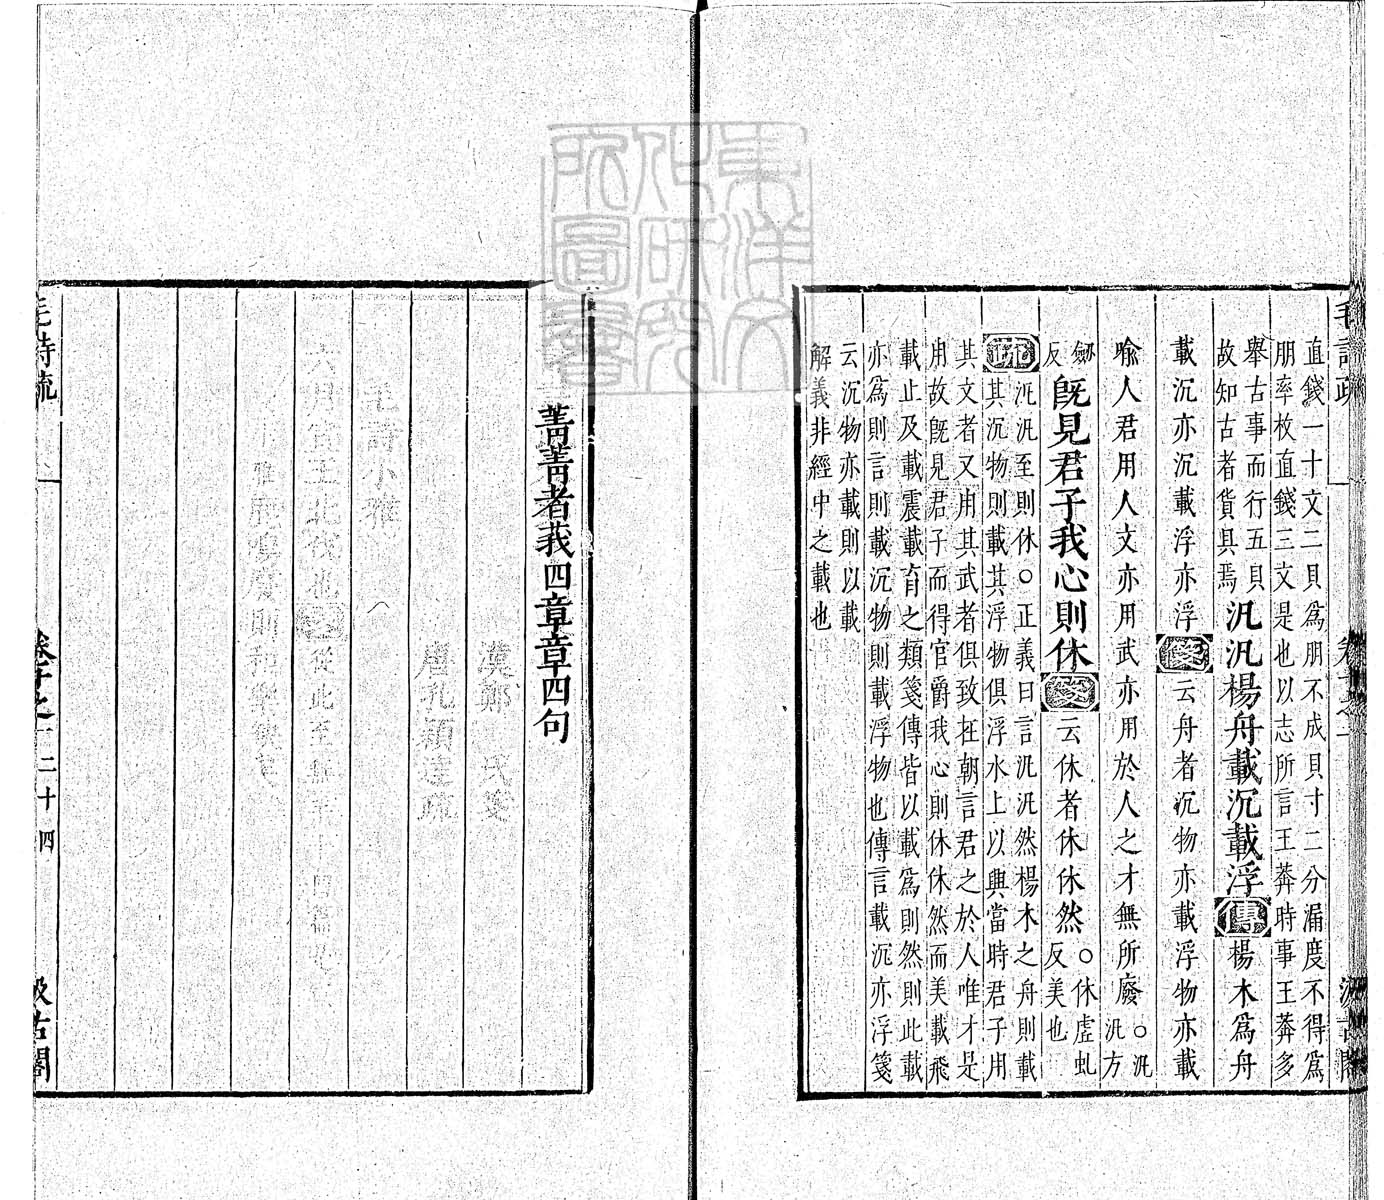 毛詩疏
直錢一十文二貝爲朋不成貝寸二分漏度不得爲
朋率枚直錢三文是也以志所言王莽時事王莽多
舉古事而行五貝
故知古者貨具焉
汎汎楊舟載沉載浮傳楊木爲舟
載沉亦沉載浮亦浮箋云舟者沉物亦載浮物亦載
喻人君用人文亦用武亦用於人之才無所廢○汎汎方
劒反既見君子我心則休箋云休者休休然○休虛虬反美也
疏汎汎至則休○正義曰言汎汎然楊木之舟則載
其沉物則載其浮物俱浮水上以興當時君子用
其文者又用其武者俱致在朝言君之於人唯才是
用故既見君子而得官爵我心則休休然而美載飛
載止及載震載育之類箋傳皆以載爲則然則此載
亦爲則言則載沉物則載浮物也傳言載沉亦浮箋
云沉物亦載則以載
解義非經中之載也
菁菁者莪四章章四句
毛詩疏 卷十之一 二十四 汲古閣
東洋文化研究所圖書